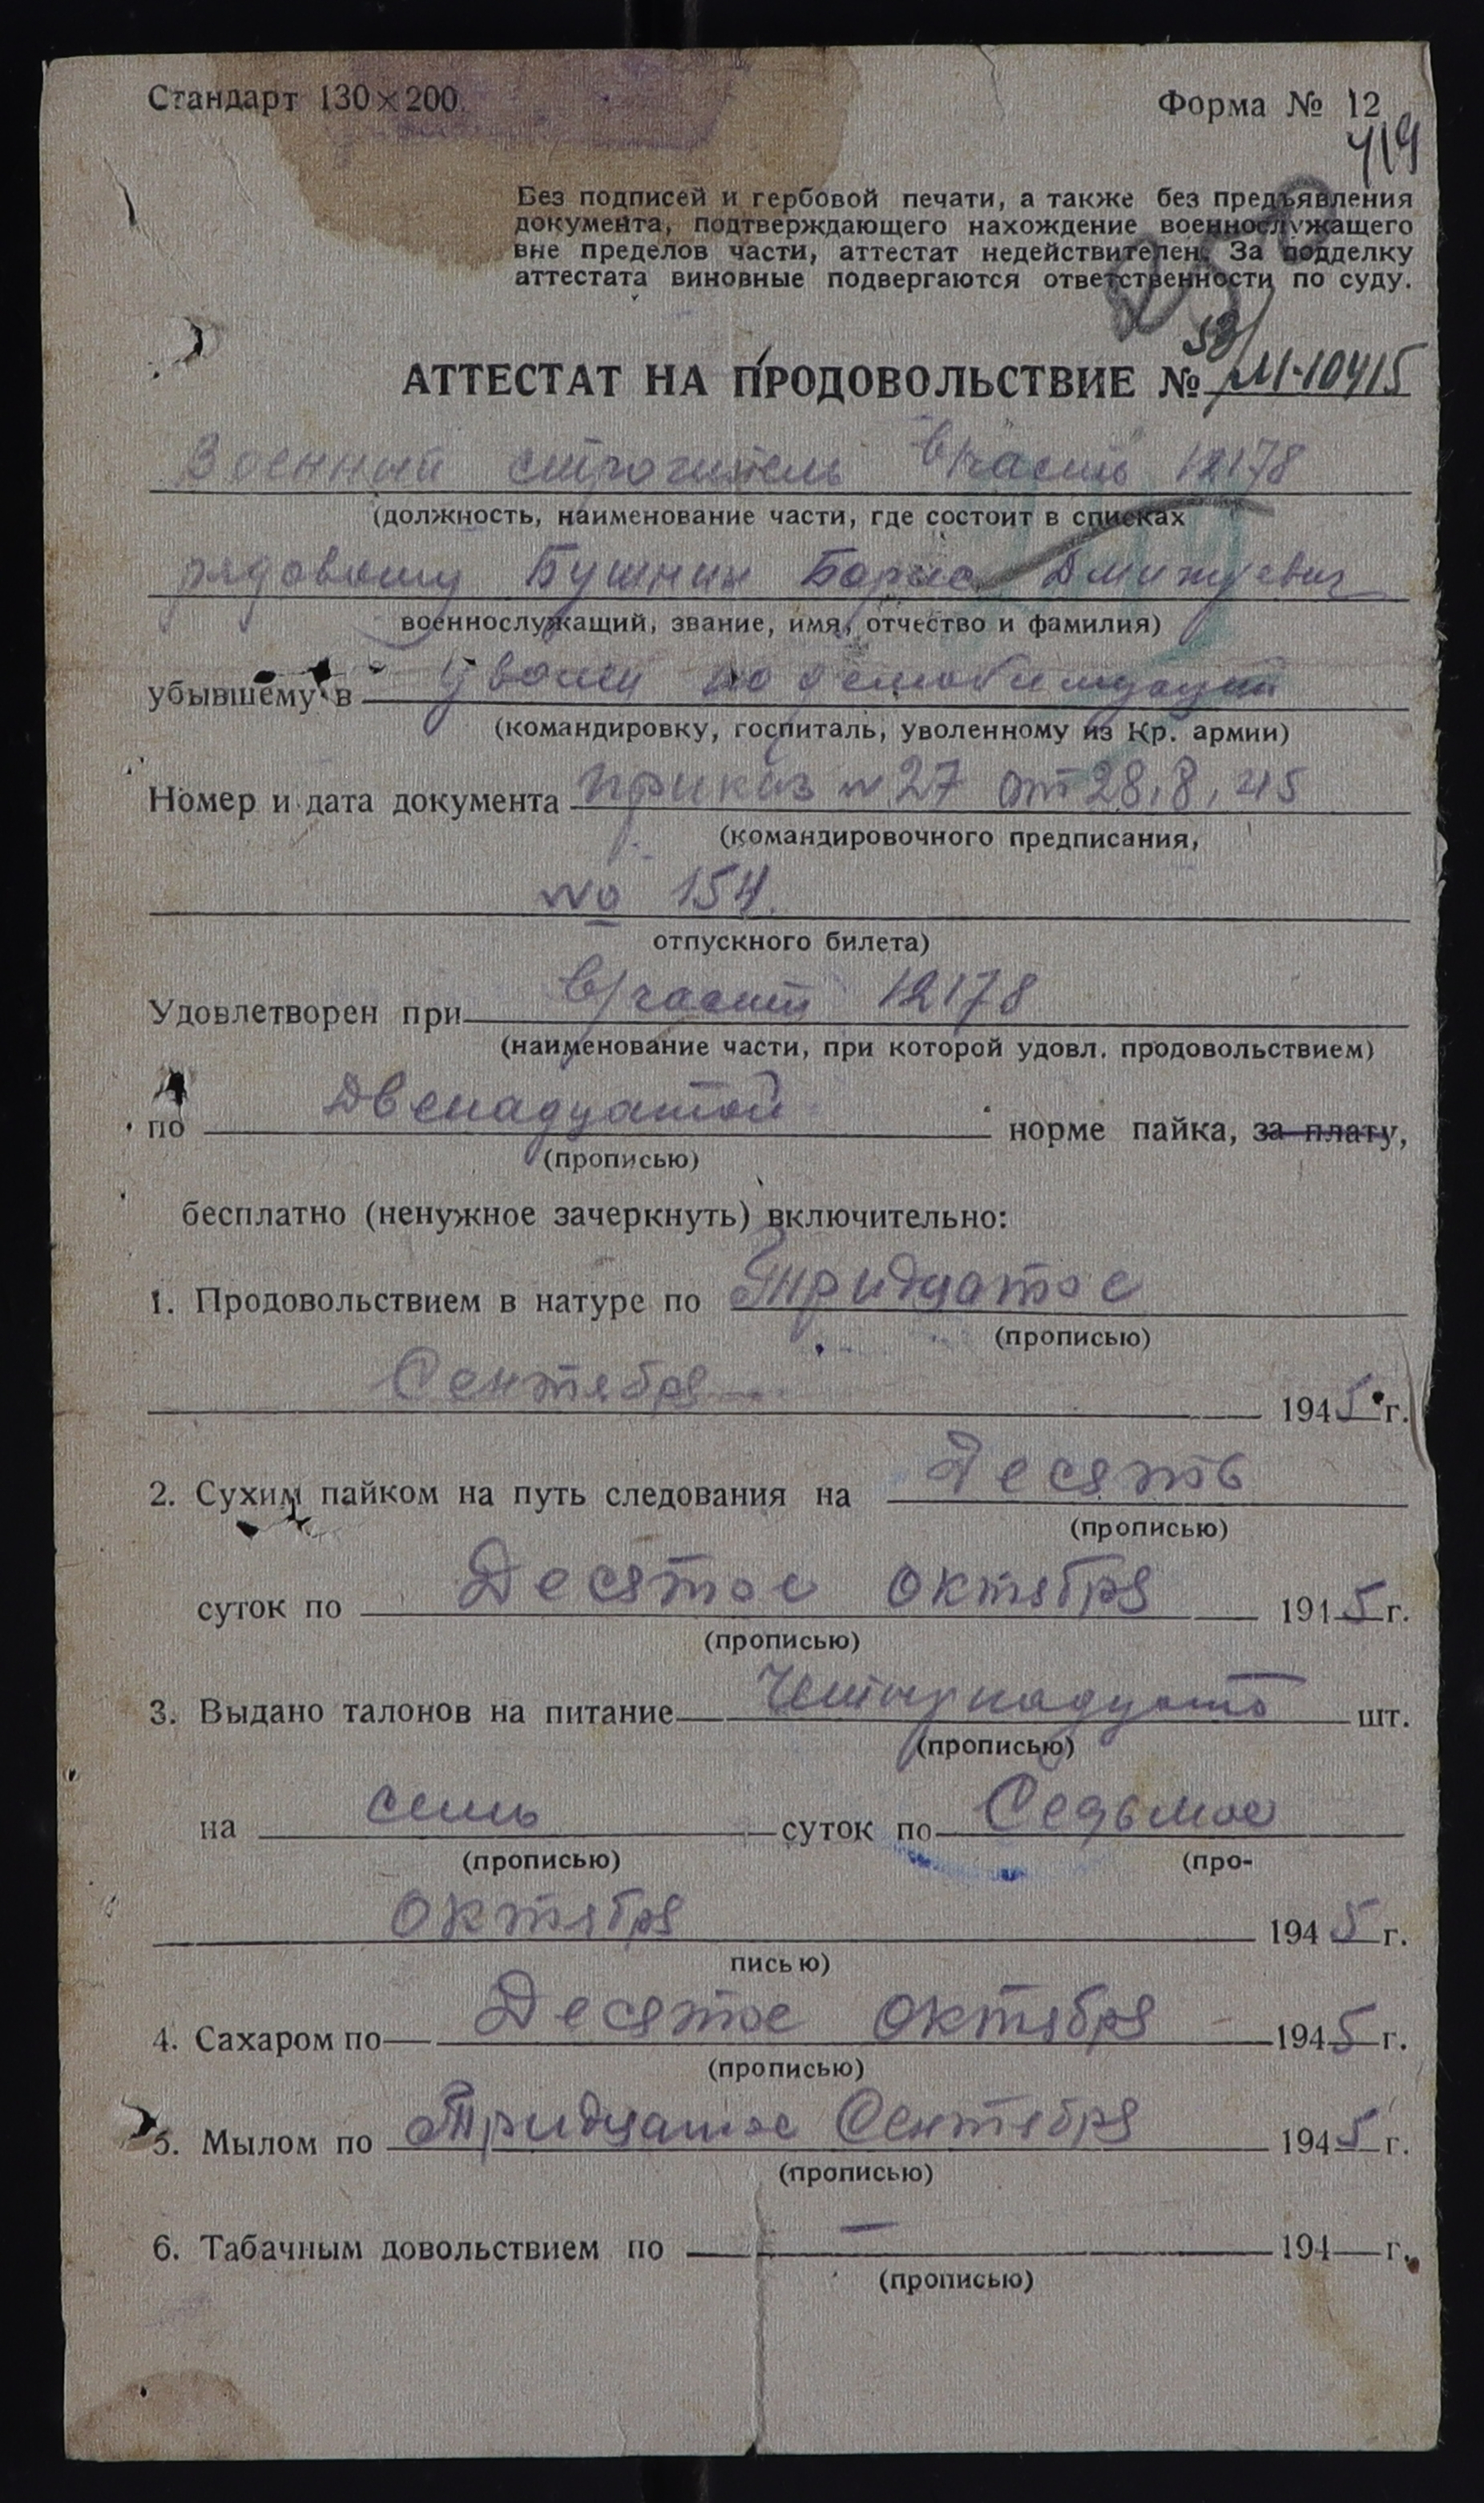 Стандарт 130×200.
Форма № 12
419
Без подписей и гербовой печати, а также без предъявления
документа, подтверждающего нахождение военнослужащего
вне пределов части, аттестат недействителен. За подделку
аттестата виновные подвергаются ответственности по суду.
АТТЕСТАТ НА ПРОДОВОЛЬСТВИЕ № М-10415
Военный строитель в/часть 12178
(должность, наименование части, где состоит в списках
рядовому Бушнин Борис Дмитриевич
военнослужащий, звание, имя, отчество и фамилия)
убывшему в по демобилизации
(командировку, госпиталь, уволенному из Кр. армии)
Номер и дата документа приказ № 27 от 28.8.45
(командировочного предписания,
№ 154.
отпускного билета)
Удовлетворен при в/части 12178
(наименование части, при которой удовл. продовольствием)
по двенадцатой норме пайка, за плату,
(прописью)
бесплатно (ненужное зачеркнуть) включительно:
1. Продовольствием в натуре по Тридцатое
(прописью)
Сентября 1945 г.
2. Сухим пайком на путь следования на Десять
(прописью)
суток по Десятое октября 1945 г.
(прописью)
3. Выдано талонов на питание Четырнадцать шт.
(прописью)
на семь суток по Седьмое
(прописью) (про-
октября 1945 г.
писью)
4. Сахаром по Десятое октября 1945 г.
(прописью)
5. Мылом по Тридцатое Сентября 1945 г.
(прописью)
6. Табачным довольствием по — 194 г.
(прописью)